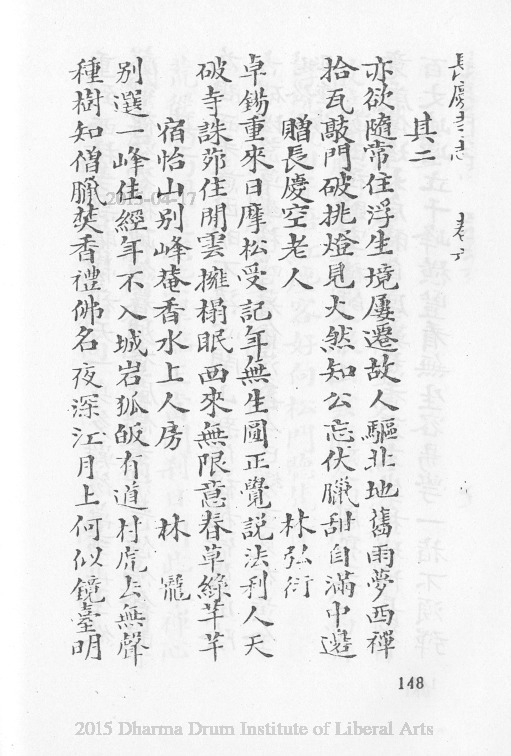 長慶寺志 卷六
其二
亦欲隨常住浮生境屢遷故人驅北地舊雨夢西禪
拾瓦敲門破挑燈見火然知公忘伏臘甜自滿中邊
贈長慶空老人 林弘衍
卓錫重來日摩松受記年無生圓正覺説法利人天
破寺誅茆住閒雲擁榻眠西來無限意春草綠芊芊
宿怡山別峰菴香水上人房 林寵
別選一峰住經年不入城岩狐皈有道村虎去無聲
種樹知僧臘焚香禮佛名夜深江月上何似鏡臺明
148
2015 Dharma Drum Institute of Liberal Arts